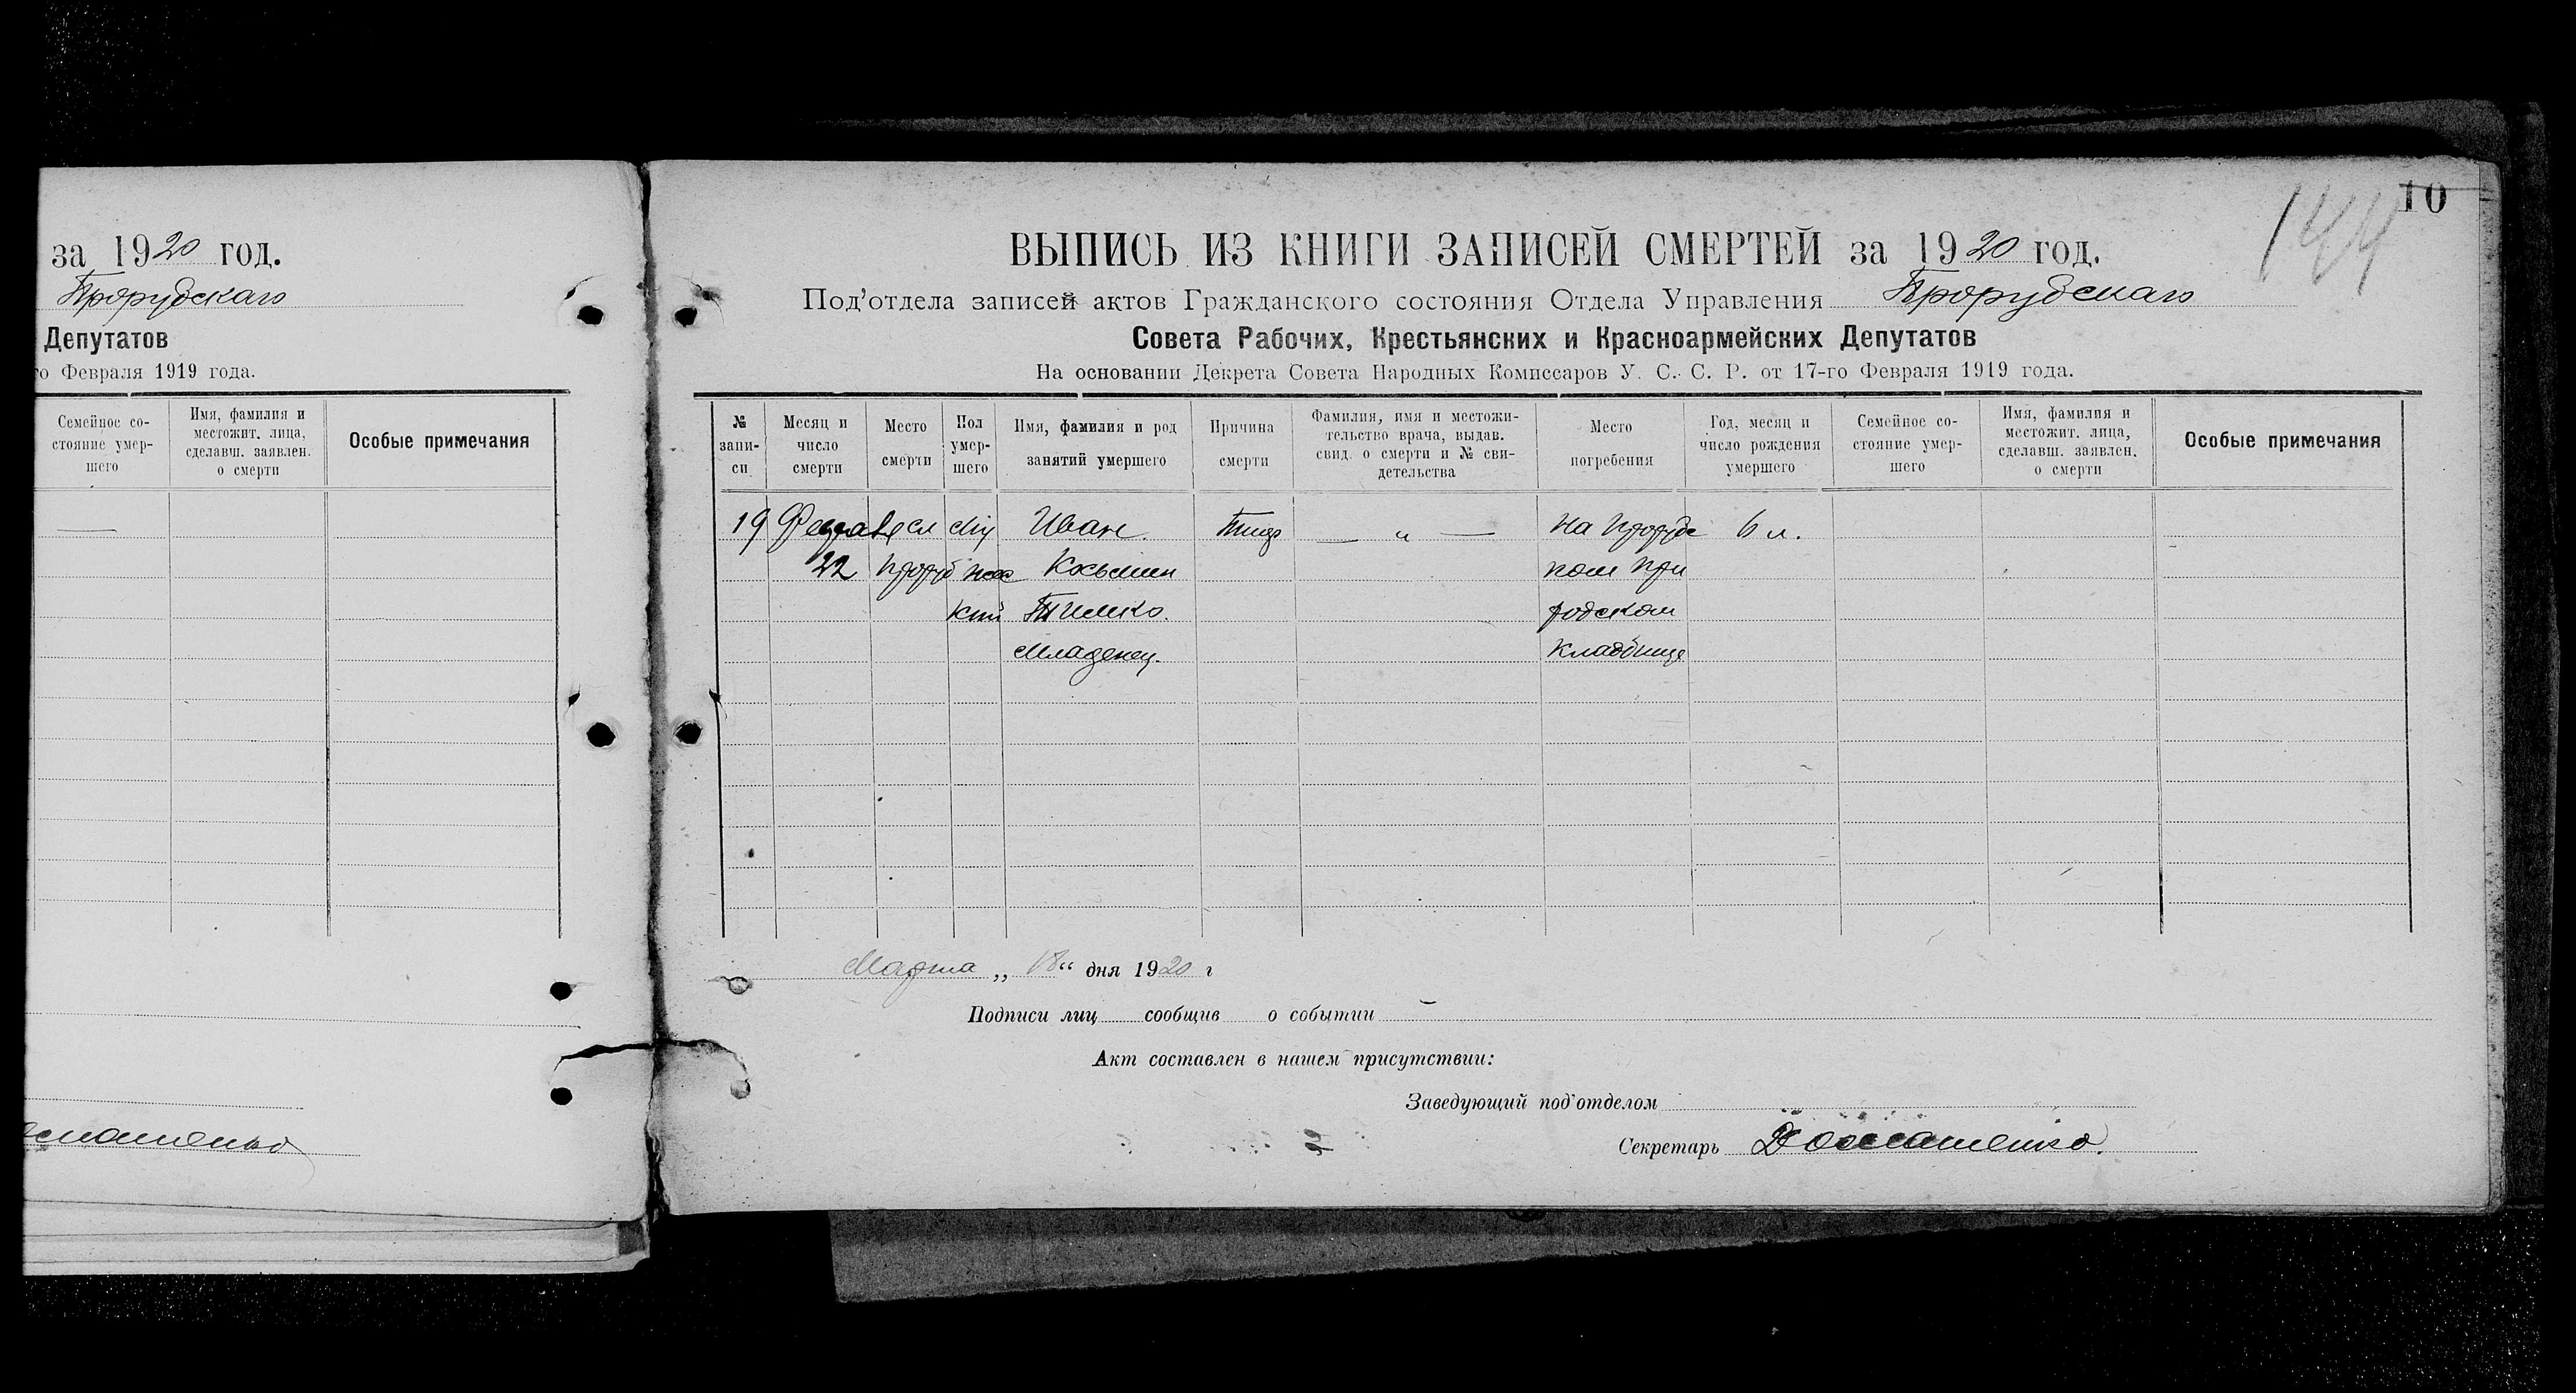 за 1920 год.
Прорубскаго
Депутатов
го Февраля 1919 года.
Семейное со-
стояние умер-
шего
Имя, фамилия и
местожит. лица,
сделавш. заявлен.
о смерти
Особые примечания
10
144
ВЫПИСЬ ИЗ КНИГИ ЗАПИСЕЙ СМЕРТЕЙ за 1920 год.
Под'отдела записей актов Гражданского состояния Отдела Управления Прорубскаго
Совета Рабочих, Крестьянских и Красноармейских Депутатов
На основании Декрета Совета Народных Комиссаров У. С. С. Р. от 17-го Февраля 1919 года.
№
запи-
си
Месяц и
число
смерти
Место
смерти
Пол
умер-
шего
Имя, фамилия и род
занятий умершего
Причина
смерти
Фамилия, имя и местожи-
тельство врача, выдав.
свид. о смерти и № сви-
детельства
Место
погребения
Год, месяц и
число рождения
умершего
Семейное со-
стояние умер-
шего
Имя, фамилия и
местожит. лица,
сделавш. заявлен.
о смерти
Особые примечания
19
22
Му
жес
кий
Иван
Косьмин
Тимко.
Младенец.
Тиф
— „ —
на Прорубс
ком
кладбище
6 л.
Марта „ 18 “ дня 1920 г
Подписи лиц сообщив о событии
Акт составлен в нашем присутствии:
Заведующий под'отделом
Секретарь